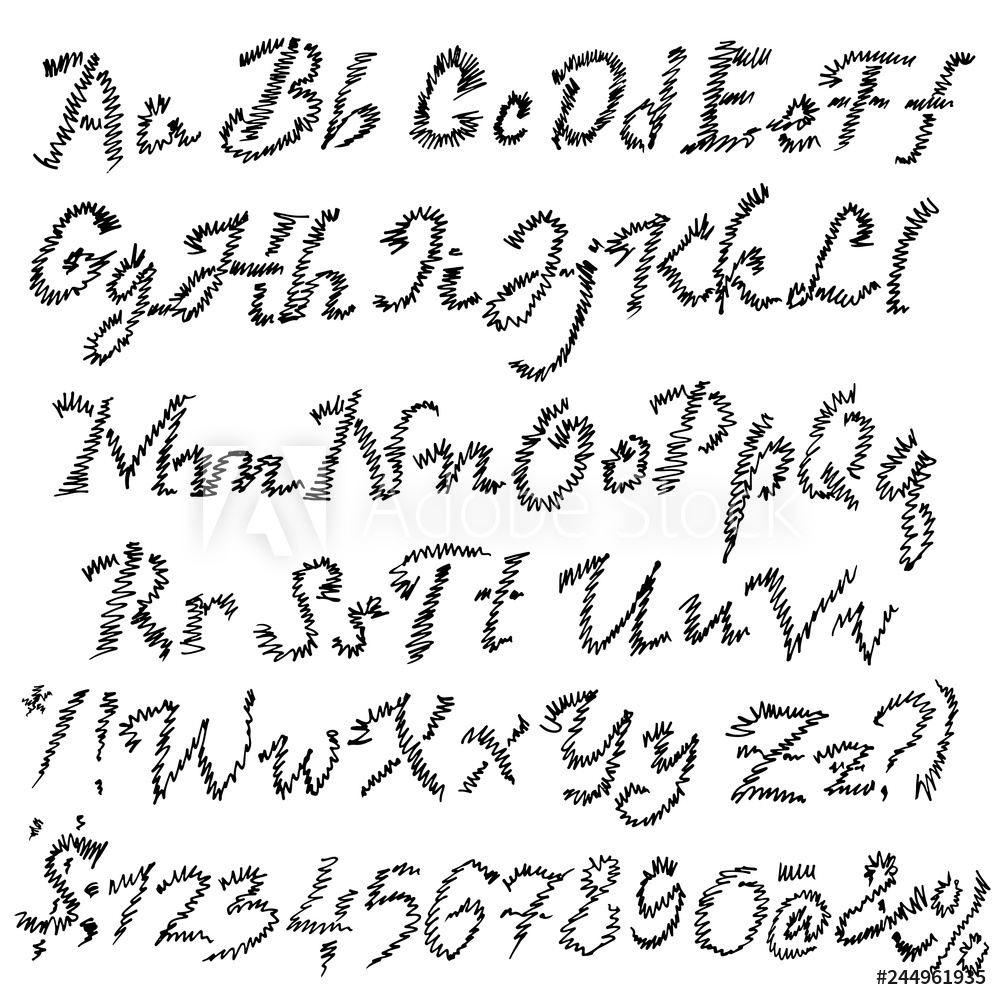 Aa Bb Cc Dd Ee Ff
Gg Hh Ii Jj Kk Ll
Mm Nn Oo Pp Qq
Rr Ss Tt Uu Vv
*/!! Ww Xx Yy Zz ?)
$:1234567890@&%
Adobe Stock
#244961935